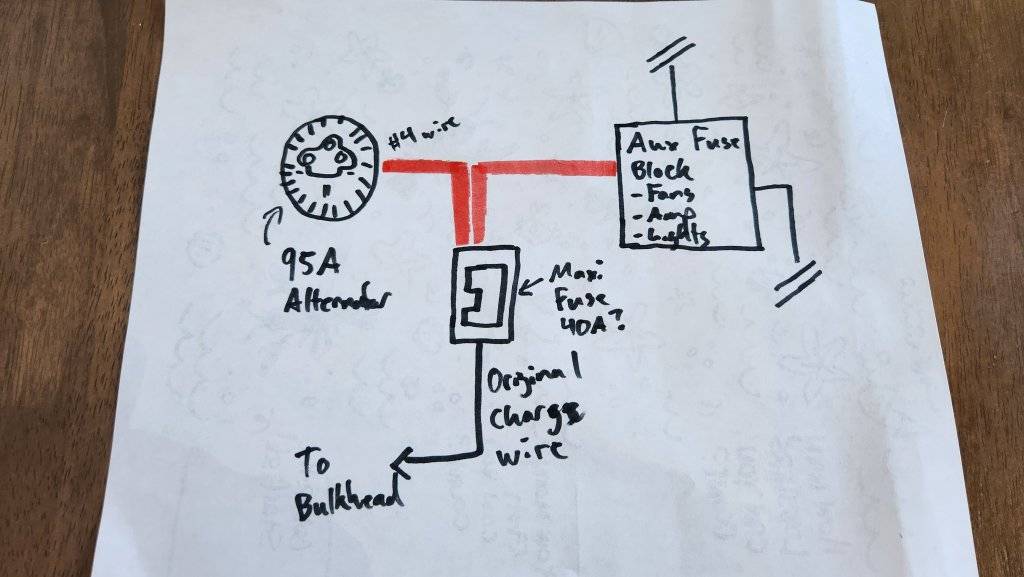 #4 wire
Aux Fuse
Block
- Fans
- Amp
- Lights
95A
Alternator
Maxi
Fuse
40A?
Original
Charge
wire
To
Bulkhead